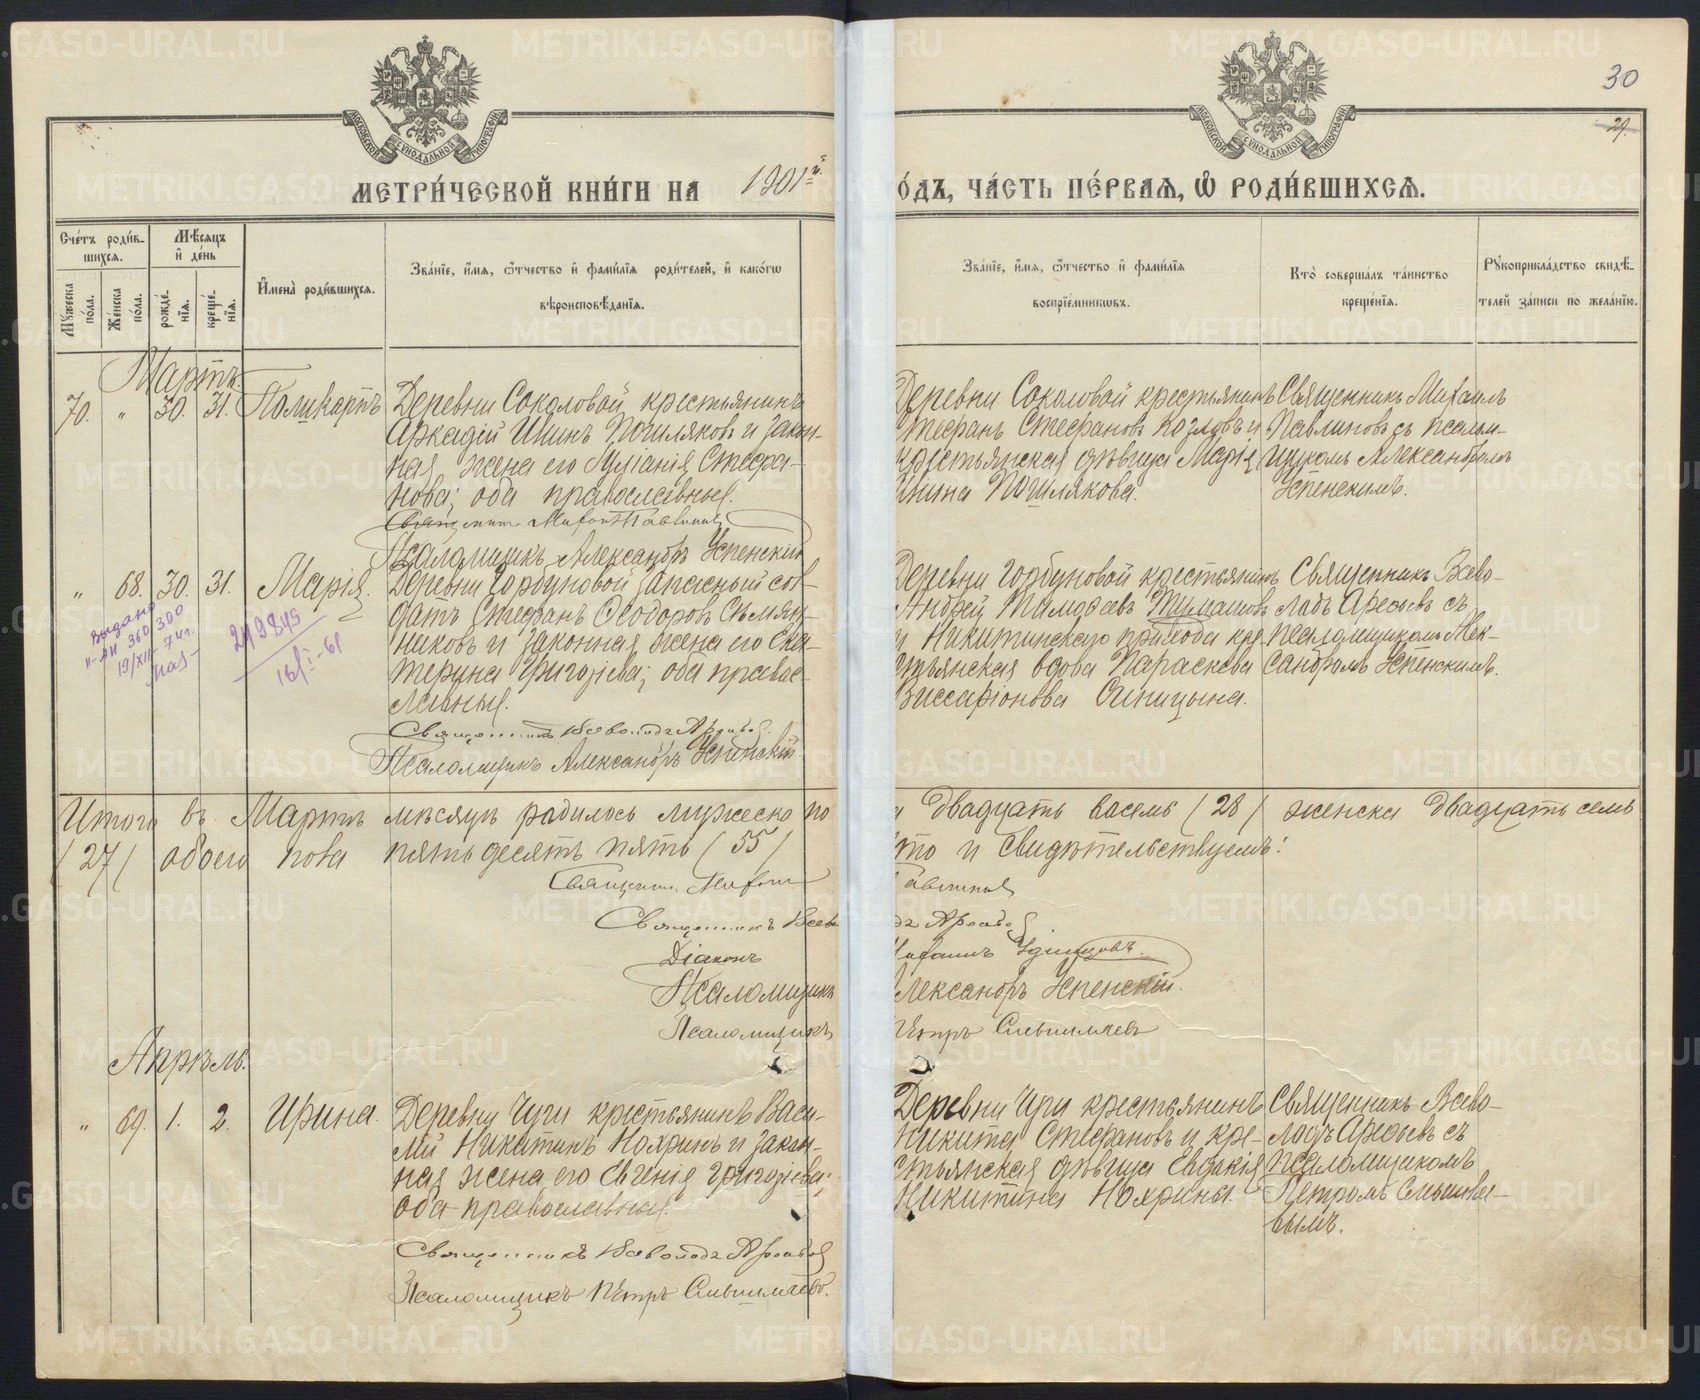 30
29.
МОСКОВСКОЙ СѴНОДАЛЬНОЙ ТИПОГРАФІИ
МОСКОВСКОЙ СѴНОДАЛЬНОЙ ТИПОГРАФІИ
МЕТРИ́ЧЕСКОЙ КНИ́ГИ НА 1901й
О́ДЪ, ЧА́СТЬ ПЕ́РВАѦ, Ѽ РОДИ́ВШИХСѦ.
Сче́тъ роди́в-
шихсѧ.
Мѣ́сѧцъ
и҆ де́нь
Мꙋ́жеска по́ла.
Же́нска по́ла.
рожде́-
нїѧ.
креще́-
нїѧ.
И҆мена̀ роди́вшихсѧ.
Зва́нїе, и҆́мѧ, ѻ҆́тчество и҆ фами́лїѧ роди́телей, и҆ како́гѡ
вѣроисповѣ́данїѧ.
Зва́нїе, и҆́мѧ, ѻ҆́тчество и҆ фами́лїѧ
воспрїе́мникѡвъ.
Кто̀ соверша́лъ та́инство
креще́нїѧ.
Рꙋкоприкла́дство свидѣ́-
телей за́писи по жела́нїю.
Мартъ.
70. „ 30. 31. Поликарпъ
Деревни Соколовой крестьянинъ
Аркадій Ининъ Пошляковъ и закон-
ная жена его Іуліанія Стефа-
нова; оба православные.
Священникъ Михаилъ Павлиновъ
Псаломщикъ Александръ Успенскій
Деревни Соколовой крестьянинъ
Стефанъ Стефановъ Козловъ и
крестьянская дѣвица Марія
Инина Пошлякова.
Священникъ Михаилъ
Павлиновъ съ псалом-
щикомъ Александромъ
Успенскимъ.
„ 68. 30. 31. Марія.
Выдано
19/XII-
249849
16/I-61
Деревни Горбуновой запасный сол-
датъ Стефанъ Ѳеодоровъ Сѣмян-
никовъ и законная жена его Ека-
терина Григорьева; оба право-
славные.
Священникъ Всеволодъ Арефьевъ
Псаломщикъ Александръ Успенскій
Деревни Горбуновой крестьянинъ
Андрей Тимоѳеевъ Тумашовъ
и Никитинскаго прихода кре-
стьянская вдова Параскева
Виссаріонова Синицына.
Священникъ Всево-
лодъ Арефьевъ съ
псаломщикомъ Алек-
сандромъ Успенскимъ.
Итого въ Мартѣ мѣсяцѣ родилось мужеска по
ла двадцать восемь (28) женска двадцать семь
(27) обоего пола пятьдесятъ пять (55)
что и свидѣтельствуемъ:
Священникъ Михаилъ Павлиновъ
Священникъ Всеволодъ Арефьевъ
Діаконъ Михаилъ Удинцовъ.
Псаломщикъ Александръ Успенскій.
Псаломщикъ Петръ
Апрѣль.
„ 69. 1. 2. Ирина.
Деревни Чуги крестьянинъ Васи-
лій Никитинъ Нохринъ и закон-
ная жена его Евгенія Григорьева;
оба православные.
Священникъ Всеволодъ Арефьевъ
Псаломщикъ Петръ
Деревни Чуги крестьянинъ
Никита Стефановъ и кре-
стьянская дѣвица Евдокія
Никитина Нохрины.
Священникъ Всево-
лодъ Арефьевъ съ
псаломщикомъ
Петромъ
METRIKI.GASO-URAL.RU